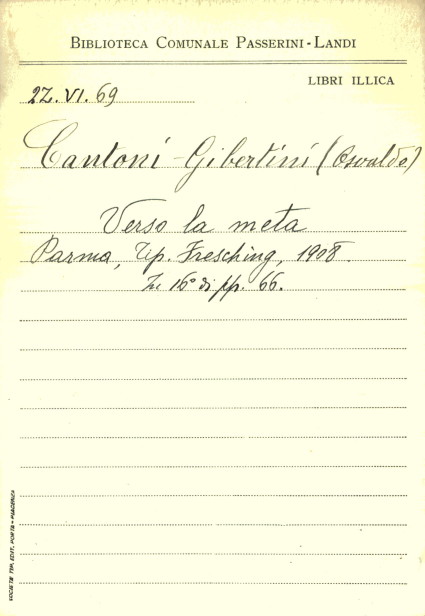 BIBLIOTECA COMUNALE PASSERINI-LANDI
LIBRI ILLICA
2Z.VI.69
Cantoni-Gibertini (Osvaldo)
Verso la meta
Parma, Tip. Fresching, 1908.
In 16° di pp. 66.
SOCIETÀ TIP. EDIT. PORTA - PIACENZA